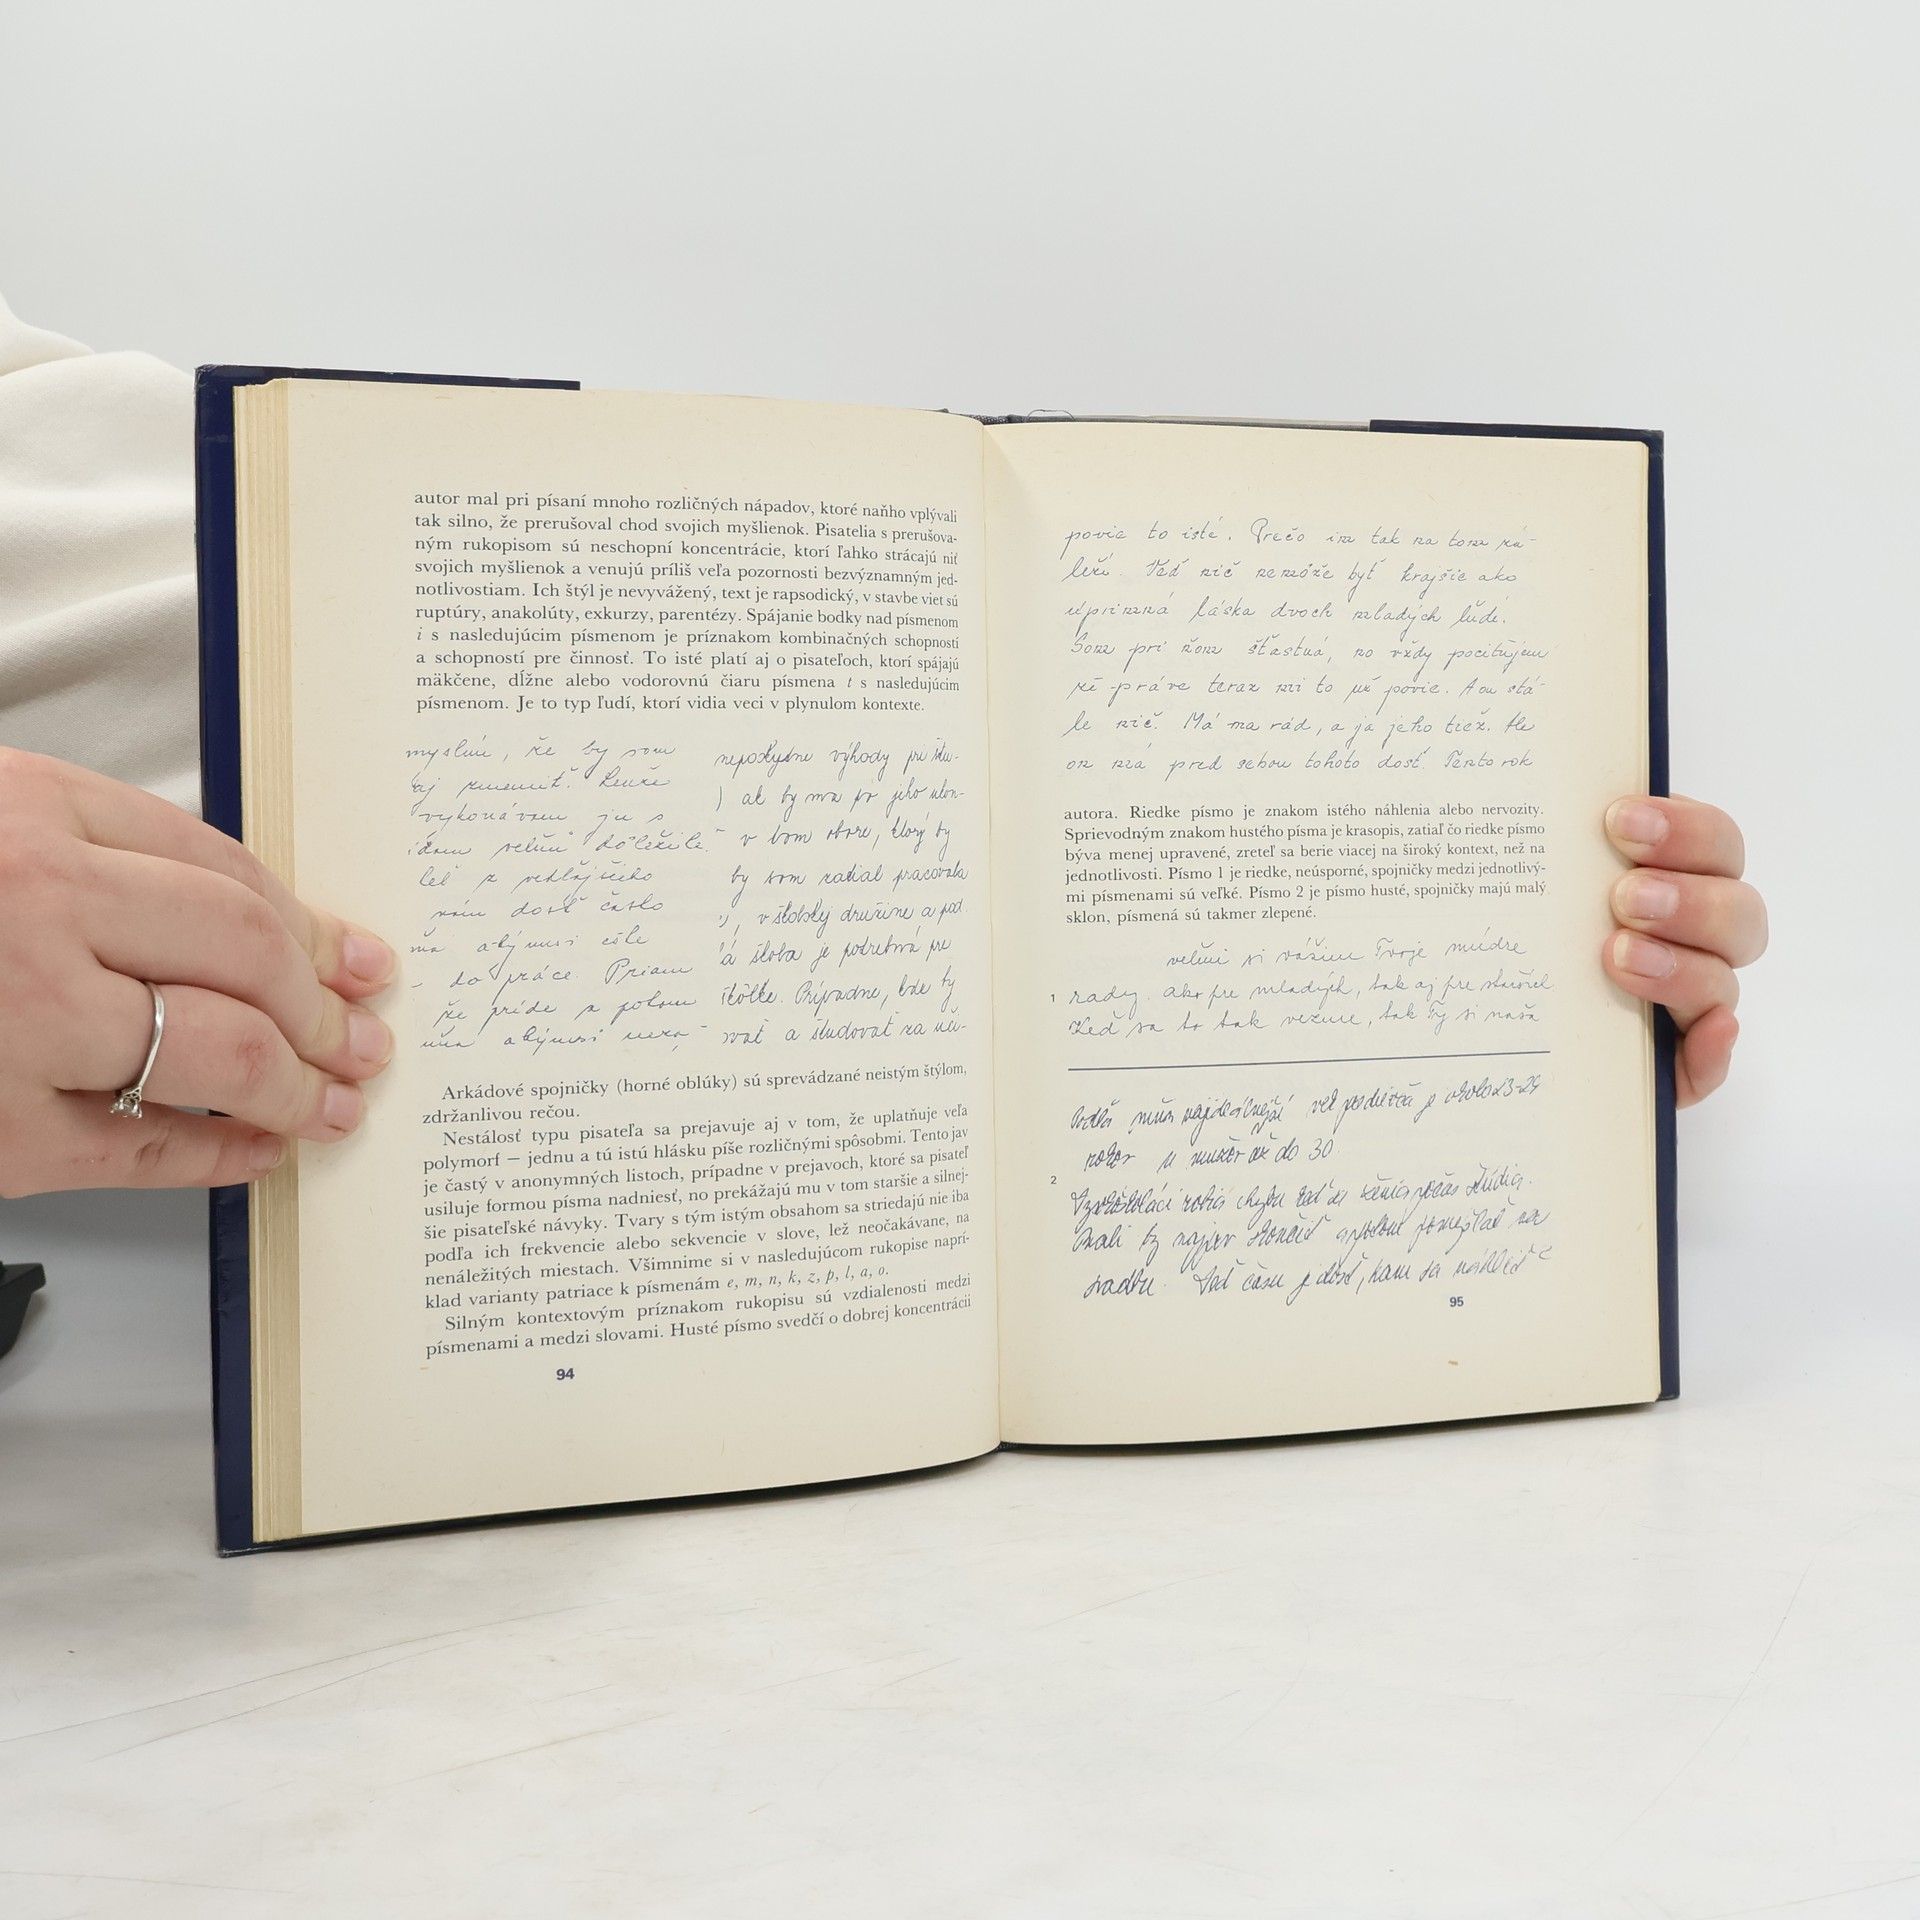 autor mal pri písaní mnoho rozličných nápadov, ktoré naňho vplývali
tak silno, že prerušoval chod svojich myšlienok. Pisatelia s prerušova-
ným rukopisom sú neschopní koncentrácie, ktorí ľahko strácajú niť
svojich myšlienok a venujú príliš veľa pozornosti bezvýznamným jed-
notlivostiam. Ich štýl je nevyvážený, text je rapsodický, v stavbe viet sú
ruptúry, anakolúty, exkurzy, parentézy. Spájanie bodky nad písmenom
i s nasledujúcim písmenom je príznakom kombinačných schopností
a schopností pre činnosť. To isté platí aj o pisateľoch, ktorí spájajú
mäkčene, dĺžne alebo vodorovnú čiaru písmena t s nasledujúcim
písmenom. Je to typ ľudí, ktorí vidia veci v plynulom kontexte.
myslím, že by som
aj zmeniť. Lenže
vykonávam ju s
veľmi dôležité.
z vedľajšieho
vám dosť často
abý musí ešte
do práce. Priam
že príde a potom
abý musí
neposkytne výhody pri štu-
) ak by ma po jeho ukon-
v tom obore, ktorý by
by som radial pracovala
v školskej družine a pod.
á škola je potrebná pre
škôlke. Prípadne, kde by
svať a študovať na uči-
Arkádové spojničky (horné oblúky) sú sprevádzané neistým štýlom,
zdržanlivou rečou.
Nestálosť typu pisateľa sa prejavuje aj v tom, že uplatňuje veľa
polymorf — jednu a tú istú hlásku píše rozličnými spôsobmi. Tento jav
je častý v anonymných listoch, prípadne v prejavoch, ktoré sa pisateľ
usiluje formou písma nadniesť, no prekážajú mu v tom staršie a silnej-
šie pisateľské návyky. Tvary s tým istým obsahom sa striedajú nie iba
podľa ich frekvencie alebo sekvencie v slove, lež neočakávane, na
nenáležitých miestach. Všimnime si v nasledujúcom rukopise naprí-
klad varianty patriace k písmenám e, m, n, k, z, p, l, a, o.
Silným kontextovým príznakom rukopisu sú vzdialenosti medzi
písmenami a medzi slovami. Husté písmo svedčí o dobrej koncentrácii
94
povie to isté. Prečo im tak na tom zá-
leží. Veď nič nemôže byť krajšie ako
úprimná láska dvoch mladých ľudí.
Som pri ňom šťastná, no vždy pociťujem
že práve teraz mi to už povie. A on stá-
le nič. Má ma rád, a ja jeho tiež. Ale
on má pred sebou tohoto dosť. Tento rok
autora. Riedke písmo je znakom istého náhlenia alebo nervozity.
Sprievodným znakom hustého písma je krasopis, zatiaľ čo riedke písmo
býva menej upravené, zreteľ sa berie viacej na široký kontext, než na
jednotlivosti. Písmo 1 je riedke, neúsporné, spojničky medzi jednotlivý-
mi písmenami sú veľké. Písmo 2 je písmo husté, spojničky majú malý
sklon, písmená sú takmer zlepené.
veľmi si vážime Tvoje múdre
1 rady. ako pre mladých, tak aj pre starších
Keď sa to tak vezme, tak Ty si naša
Podľa mňa najideálnejší vek pre dievča je okolo 23-24
rokov u mužov až do 30.
2
Vysokoškoláci robia chybu keď sa ženia počas štúdia.
Mali by najprv skončiť a potom pomýšľať na
svadbu. Veď času je dosť, kam sa náhliť
95